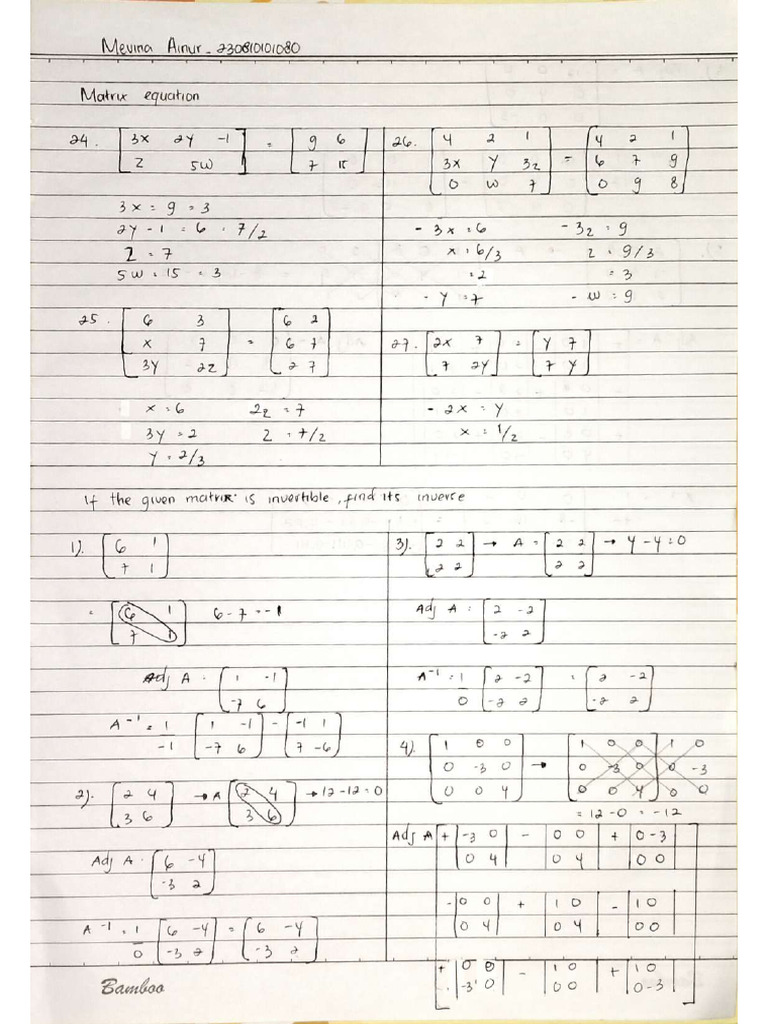 Mevina Ainur - 230810101080
Matrix equation
24. [3x 2y -1] = [9 6]
[z 5w] [7 15]
3x = 9 = 3
2y - 1 = 6 = 7/2
z = 7
5w = 15 = 3
25. [6 3] = [6 2]
[x 7] [6 7]
[3y 2z] [2 7]
x = 6 2z = 7
3y = 2 z = 7/2
y = 2/3
26. [4 2 1] = [4 2 1]
[3x y 3z] [6 7 9]
[0 w 7] [0 9 8]
- 3x = 6 - 3z = 9
x = 6/3 z = 9/3
= 2 = 3
- y = 7 - w = 9
27. [2x 7] = [y 7]
[7 2y] [7 y]
- 2x = y
x = 1/2
If the given matrix is invertible, find its inverse
1). [6 1]
[7 1]
= [6 1] 6 - 7 = -1
[7 1]
Adj A = [1 -1]
[-7 6]
A -1 = 1 [1 -1] - [-1 1]
-1 [-7 6] [7 -6]
2). [2 4] → A [2 4] → 12 - 12 = 0
[3 6] [3 6]
Adj A = [6 -4]
[-3 2]
A -1 = 1 [6 -4] = [6 -4]
0 [-3 2] [-3 2]
3). [2 2] → A = [2 2] → 4 - 4 = 0
[2 2] [2 2]
Adj A = [2 -2]
[-2 2]
A-1 = 1 [2 -2] = [2 -2]
0 [-2 2] [-2 2]
4). [1 0 0] → [1 0 0] 1 0
[0 -3 0] [0 -3 0] 0 -3
[0 0 4] [0 0 4] 0 0
= 12 - 0 = -12
Adj A + |-3 0| - |0 0| + |0 -3|
|0 4| |0 4| |0 0|
- |0 0| + |1 0| - |1 0|
|0 4| |0 4| |0 0|
+ |0 0| - |1 0| + |1 0|
|-3 0| |0 0| |0 -3|
Bamboo